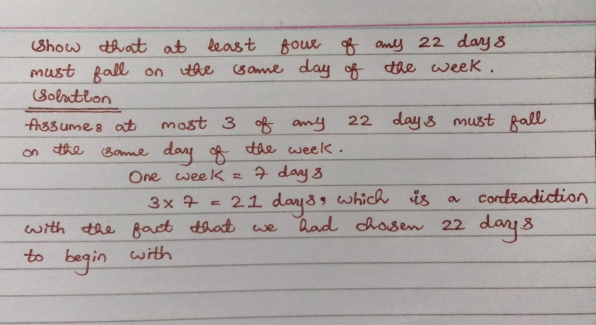 Show that at least four of any 22 days
must fall on the same day of the week.
Solution
Assumes at most 3 of any 22 days must fall
on the same day of the week.
One week = 7 days
3 x 7 = 21 days, which is a contradiction
with the fact that we had chosen 22 days
to begin with